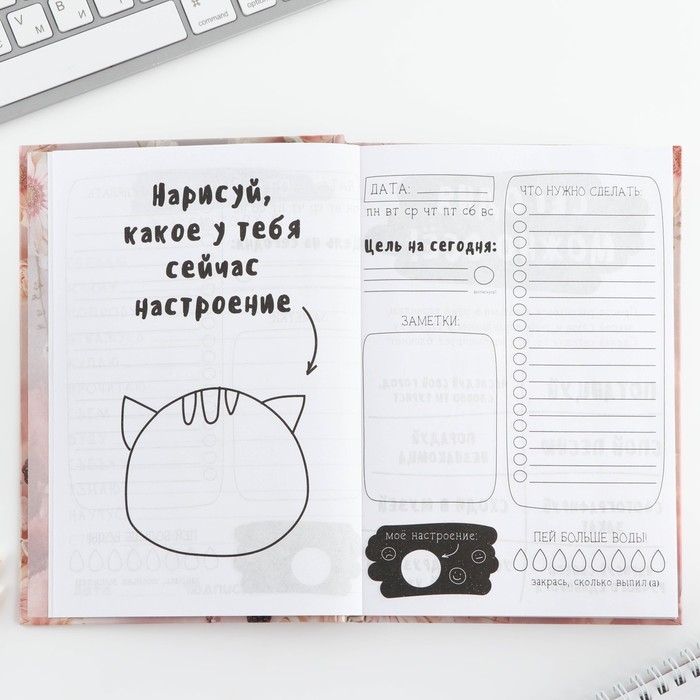 command
option
V
B
N
M
Нарисуй,
какое у тебя
сейчас
настроение
ДАТА:
ПН ВТ СР ЧТ ПТ СБ ВС
Цель на сегодня:
ЗАМЕТКИ:
моё настроение:
ЧТО НУЖНО СДЕЛАТЬ:
ПЕЙ БОЛЬШЕ ВОДЫ!
закрась, сколько выпил(а)